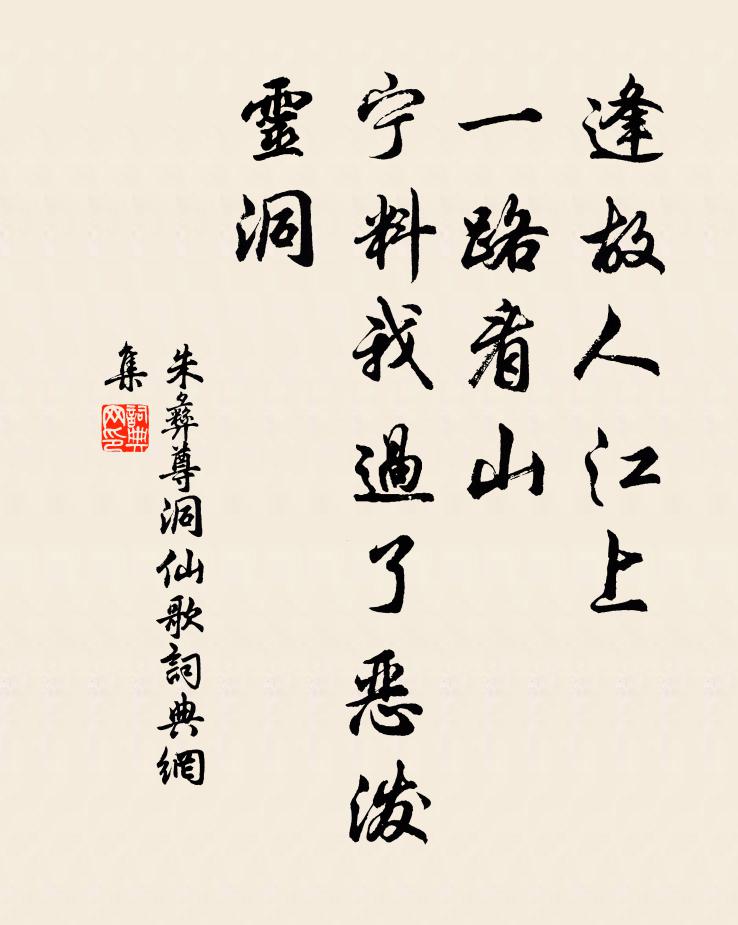 逢故人江上
一路看山
宁料我過了恶泼
靈洞
朱彝尊洞仙歌詞典網
集
詞典
网印